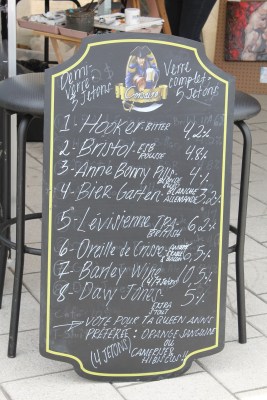 Demi-
Verre
3 Jetons
Verre
complet
5 Jetons
Corsaire
1 - Hooker - BITTER 4,2%
2 - Bristol - ESB
ROUSSE 4,8%
3 - Anne Bonny Pils - BLONDE 4%
4 - Bier Garten - BLANCHE
ALLEMANDE 3,2%
5 - Lévisienne IPA - BRITISH 6,2%
6 - Oreille de Crisse - 5%
7 - Barley Wine 10,5%
8 - Davy Jones - EXTRA
STOUT 5%
→ VOTE POUR TA QUEEN ANNE
PRÉFÉRÉE : ORANGE SANGUINE
OU
(4 JETONS) CANNEBERGE
HIBISCUS!!